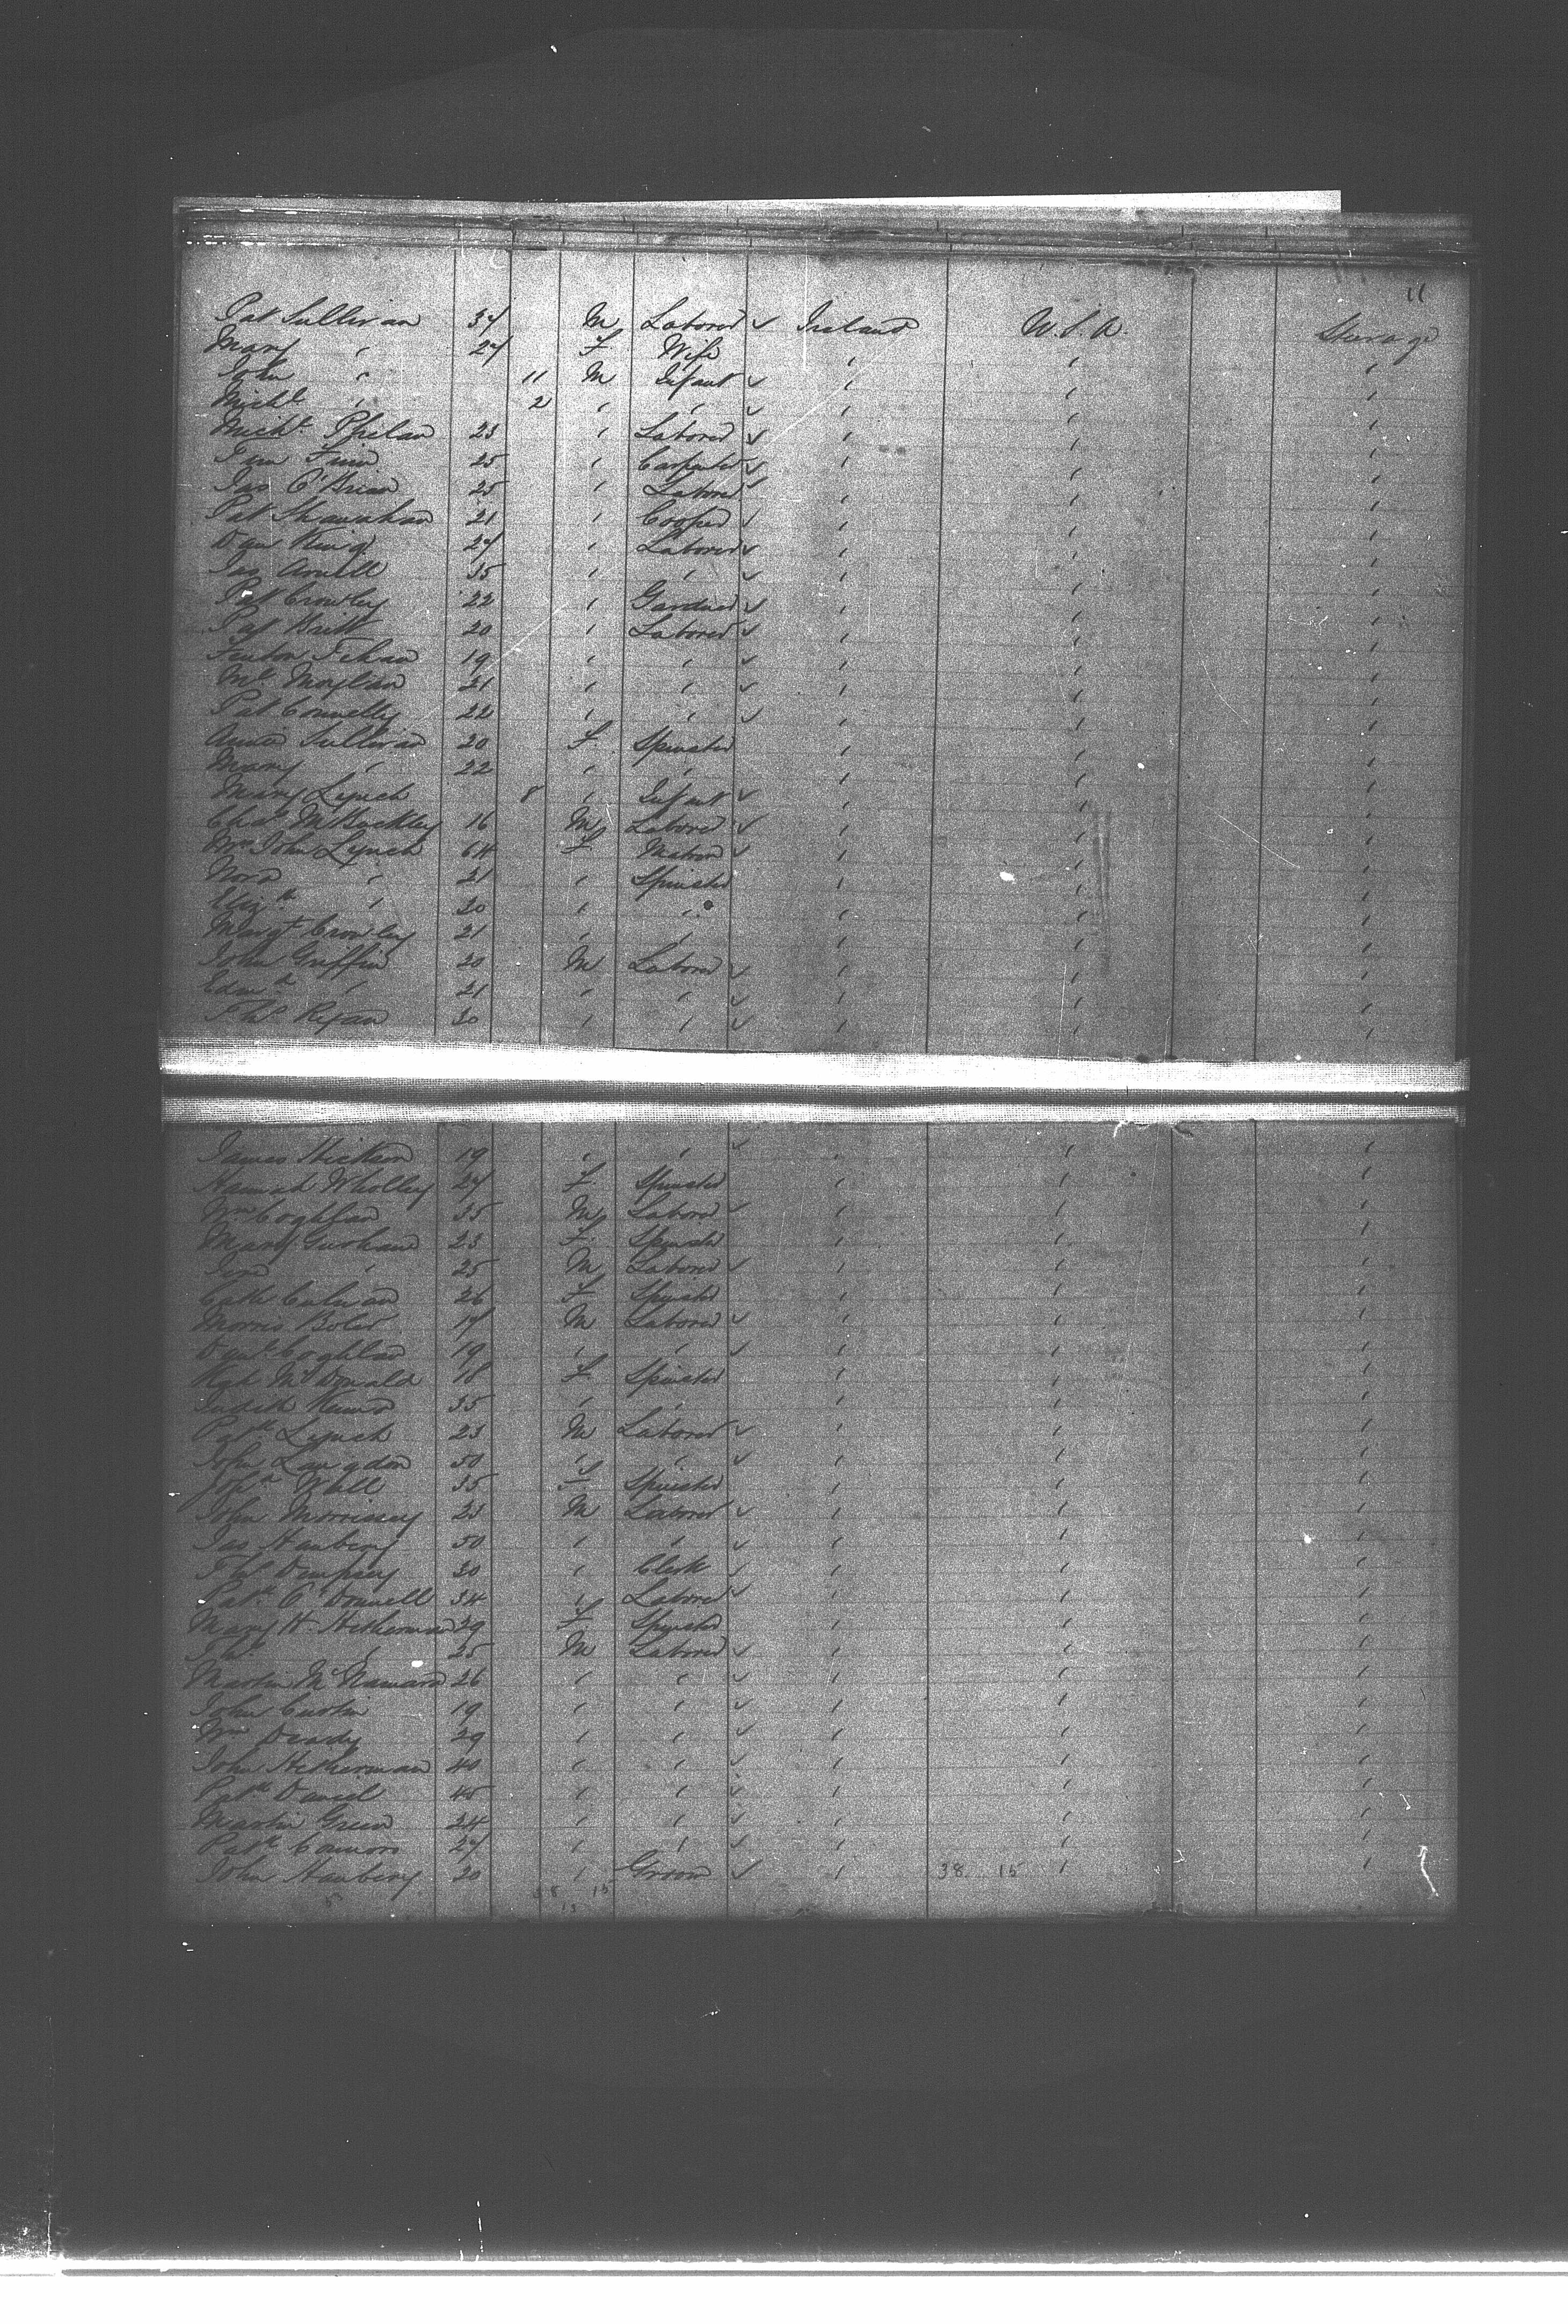 11
Pat Sullivan 37 M Laborer ✓ Ireland U.S.A. Steerage
Mary " 27 F Wife " " "
John " 11 M Infant ✓ " " "
Michl " 2 " " ✓ " " "
Michl Phelan 23 " Laborer ✓ " " "
25 " Carpenter ✓ " " "
Jas O'Brien 25 " Laborer ✓ " " "
Pat Shanahan 21 " Cooper ✓ " " "
Dan King 27 " Laborer ✓ " " "
Jas 35 " " ✓ " " "
Pat Crowley 22 " Gardner ✓ " " "
Pat Britt 20 " Laborer ✓ " " "
19 " " ✓ " " "
Ml Moylan 21 " " ✓ " " "
Pat Connelly 22 " " ✓ " " "
Annie Sullivan 20 F Spinster " " "
Mary " 22 " " " " "
Mary Lynch 8 " Infant ✓ " " "
Chas McBuckley 16 M Laborer ✓ " " "
Mrs John Lynch 64 F Matron ✓ " " "
Nora " 21 " Spinster " " "
Elizth " 20 " " " " "
Margt Crowley 21 " " " " "
John Griffin 20 M Laborer ✓ " " "
Edmd " 21 " " ✓ " " "
Ryan 20 " " ✓ " " "
James 19 " " ✓ " " "
Hannah Wholley 27 F Spinster " " "
Wm Coghlan 35 M Laborer ✓ " " "
Mary 23 F Spinster " " "
" 25 M Laborer ✓ " " "
Cath 26 F Spinster " " "
Morris 17 M Laborer ✓ " " "
Danl Coghlan 19 " " ✓ " " "
McDonald 18 F Spinster " " "
Judith 35 " " " " "
Patk Lynch 23 M Laborer ✓ " " "
John Langdon 50 " " ✓ " " "
35 F Spinster " " "
John Morrissey 23 M Laborer ✓ " " "
Jas Hanbery 50 " " ✓ " " "
Dempsey 30 " Clerk ✓ " " "
Patk O'Donnell 34 " Laborer ✓ " " "
Mary H. Hetherman 29 F Spinster " " "
" 25 M Laborer ✓ " " "
Martin McNamara 26 " " ✓ " " "
John Curtin 19 " " ✓ " " "
Wm Deady 29 " " ✓ " " "
John Hetherman 40 " " ✓ " " "
Patk David 45 " " ✓ " " "
Martin Green 24 " " ✓ " " "
Patk Connors 27 " " ✓ " " "
John Hanbery 20 " Groom ✓ " 38 15 " "
38 15